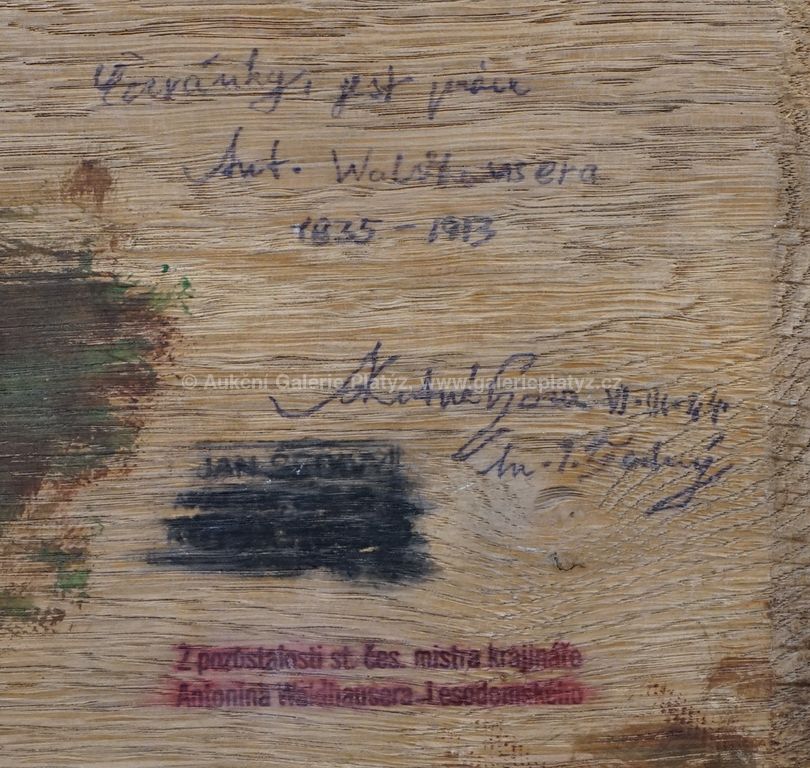 Červánky, jest práce
Ant. Waldhausera
1835 - 1913
© Aukční Galerie Platýz, www.galerieplatyz.cz
Kutná Hora
JAN
Z pozůstalosti st. čes. mistra krajináře
Antonína Waldhausera-Lesodomského